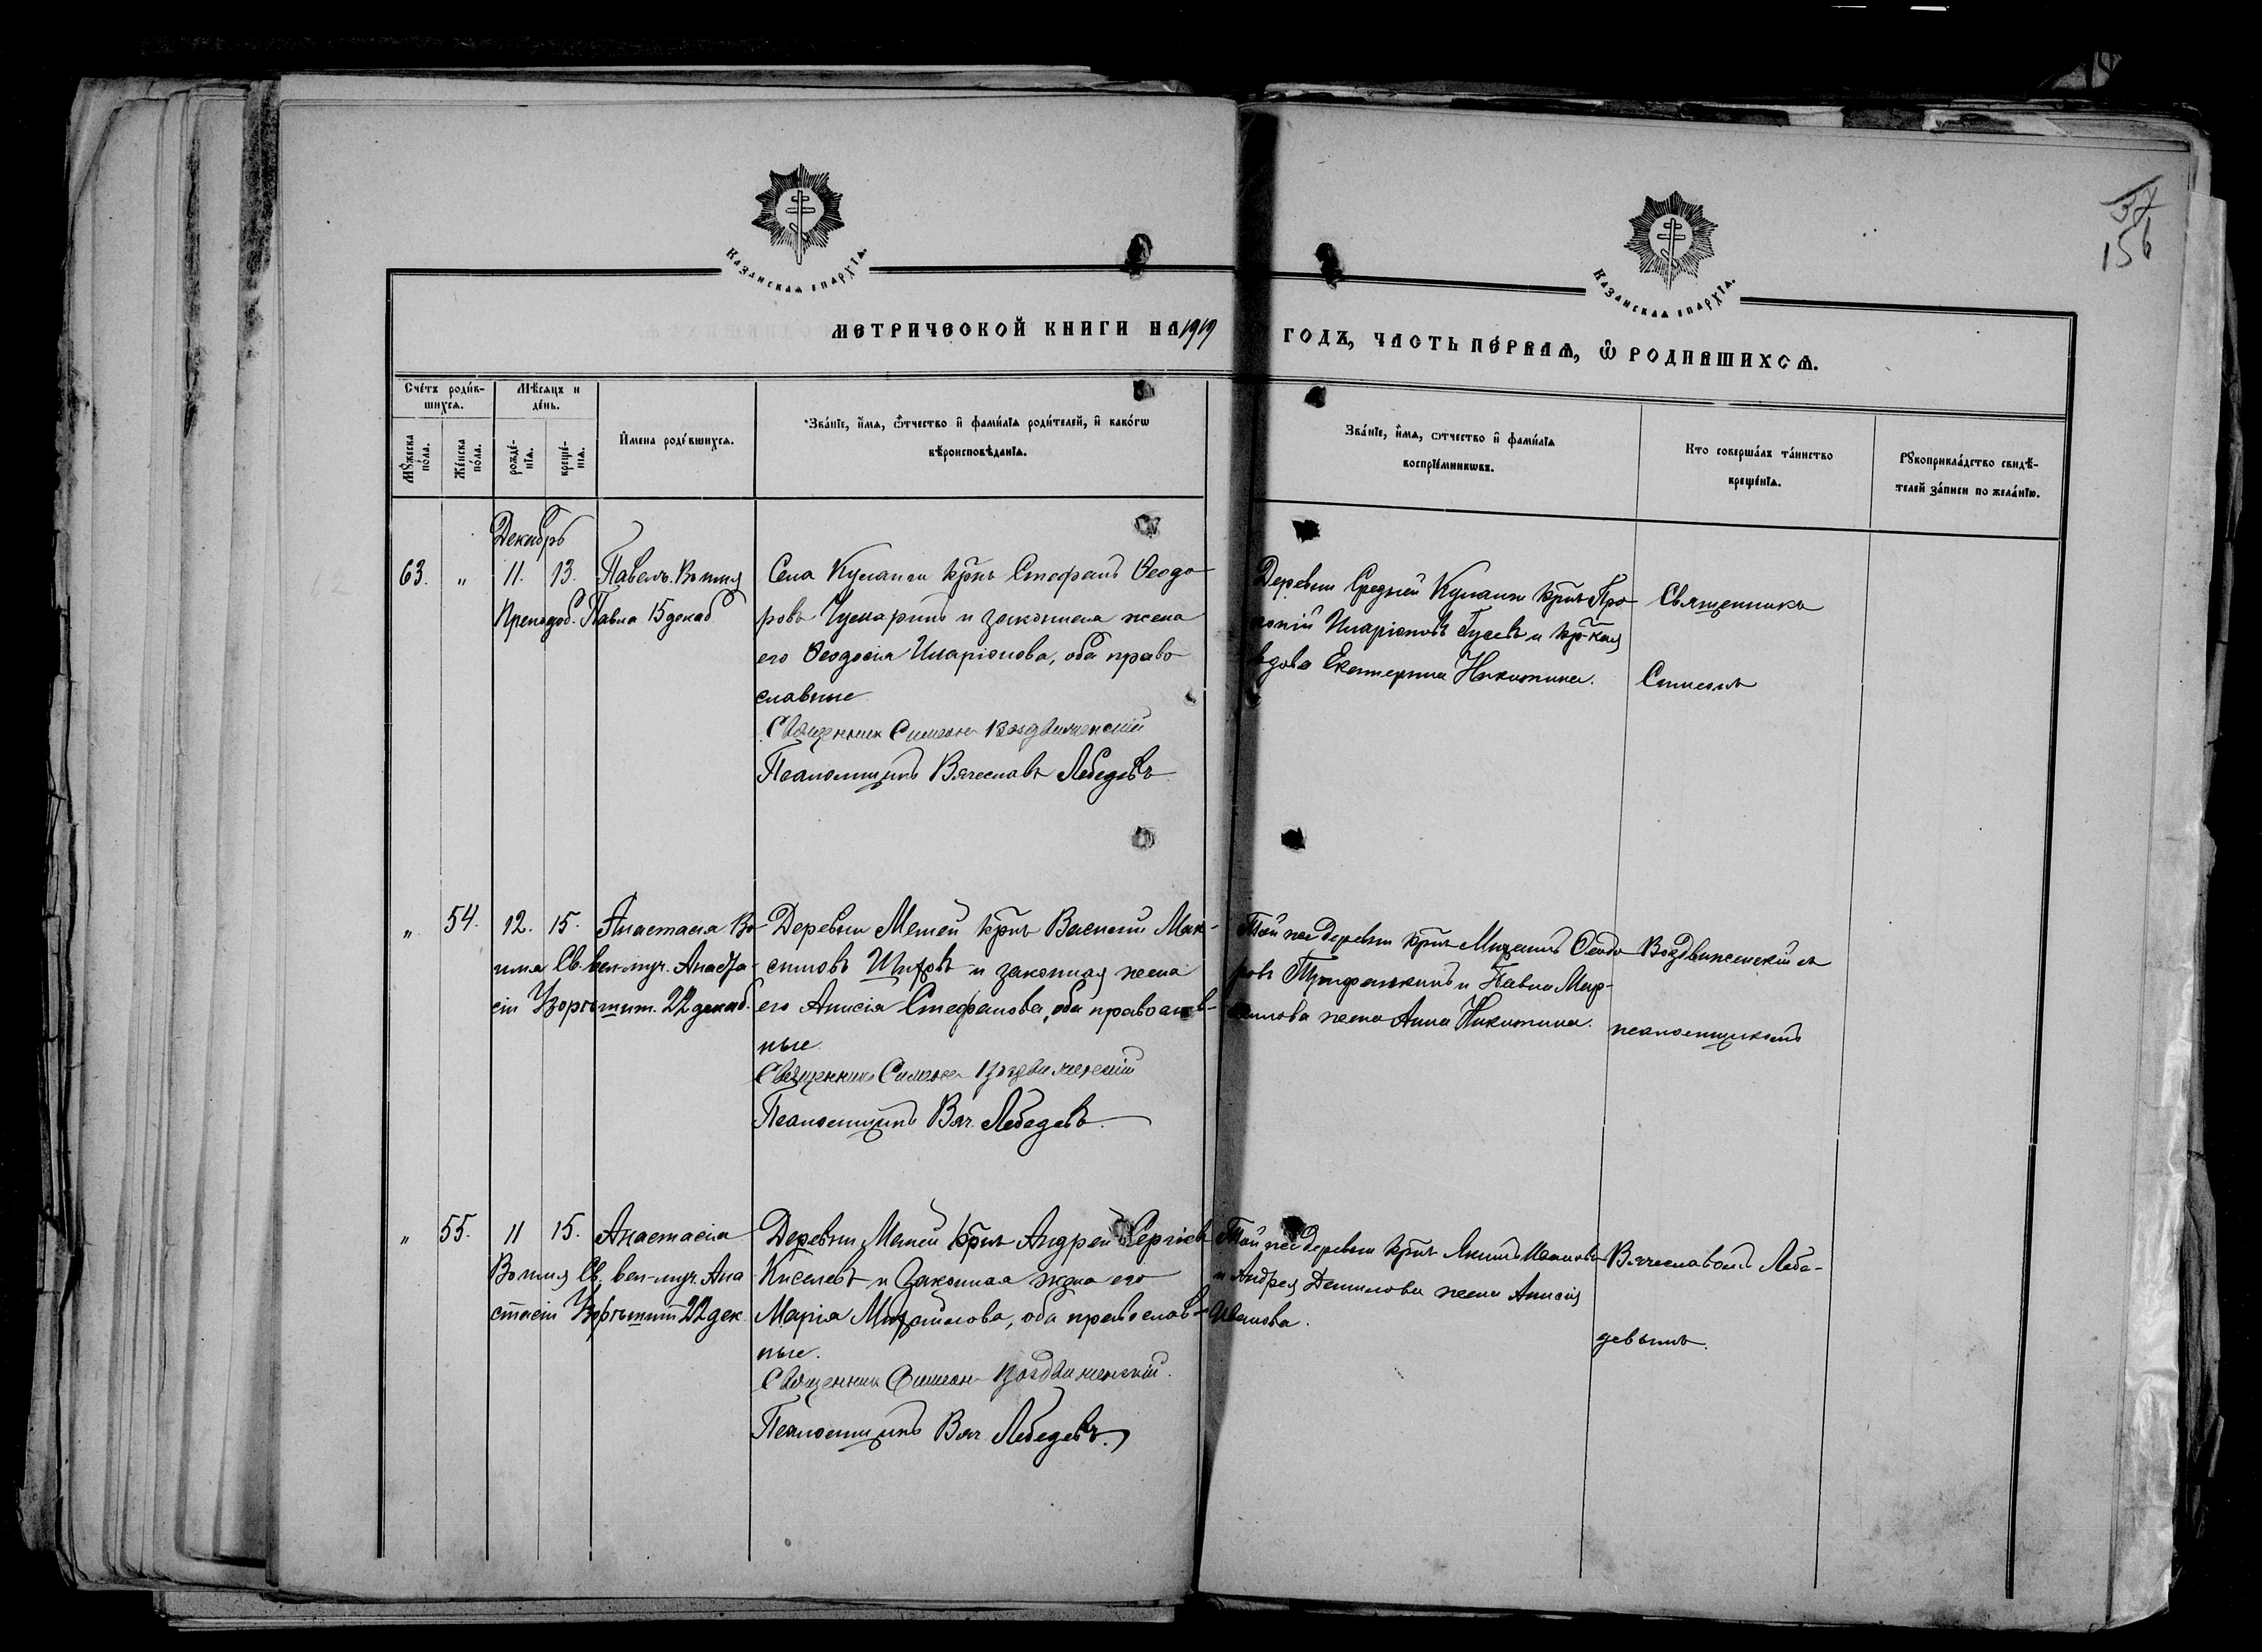 37
156
Казанская епархїѧ.
Казанская епархїѧ.
МЕТРИЧЕСКОЙ КНИГИ НА 1919
ГОДЪ, ЧАСТЬ ПЕ́РВАѦ, Ѽ РОДИВШИХСѦ.
Сче́тъ роди́в-
шихсѧ.
Мѣ́сяцъ и
де́нь.
Мꙋ́жеска
по́ла.
Же́нска
по́ла.
рожде́-
нїѧ.
креще́-
нїѧ.
И҆мена роди́вшихсѧ.
Зва́нїе, и҆́мѧ, ѻ҆́тчество и҆ фами́лїѧ роди́телей, и҆ како́гѡ
вѣроисповѣ́данїѧ.
Зва́нїе, и҆́мѧ, ѻ҆́тчество и҆ фами́лїѧ
воспрїе́мникѡвъ.
Кто соверша́лъ та́инство
креще́нїѧ.
Рꙋкоприкла́дство свидѣ́-
телей за́писи по жела́нїю.
Декабрь
63. „ 11. 13. Павелъ. Во имя
Преподоб. Павла 15 декаб.
Села Куланги крнъ Стефанъ Ѳеодо-
ровъ Чукаринъ и законная жена
его Ѳеодосія Иларіонова, оба право-
славные.
Священник Симеон Воздвиженскій
Псаломщикъ Вячеславъ Лебедевъ
Деревни Средней Куланги крнъ Про-
копій Иларіоновъ Гусевъ и кр-кая
вдова Екатерина Никитина.
Священникъ
Симеонъ
„ 54. 12. 15. Анастасія Во
имя Св. вел-муч. Анаста-
сіи Узорѣшит. 22 декаб.
Деревни Мемей крнъ Василій Мак-
симовъ и законная жена
его Анисія Стефанова, оба православ-
ные.
Священник Симеон Воздвиженскій
Псаломщикъ Вяч. Лебедевъ.
Той же деревни крнъ Михаилъ Ѳеодо-
ровъ и Павла
жена Анна Никитина.
Воздвиженскій съ
псаломщикомъ
„ 55. 11 15. Анастасія
Во имя Св. вел-муч. Ана
стасіи Узорѣшит 22 дек.
Деревни Мемей крнъ Андрей Сергіевъ
Киселевъ и законная жена его
Марія Михайлова, оба православ-
ные.
Священник Симеон Воздвиженскій.
Псаломщикъ Вяч. Лебедевъ.
Той же деревни крнъ Ивановъ
и Андрея Данилова жена Анисія
Иванова.
Вячеславомъ Лебе-
девымъ.